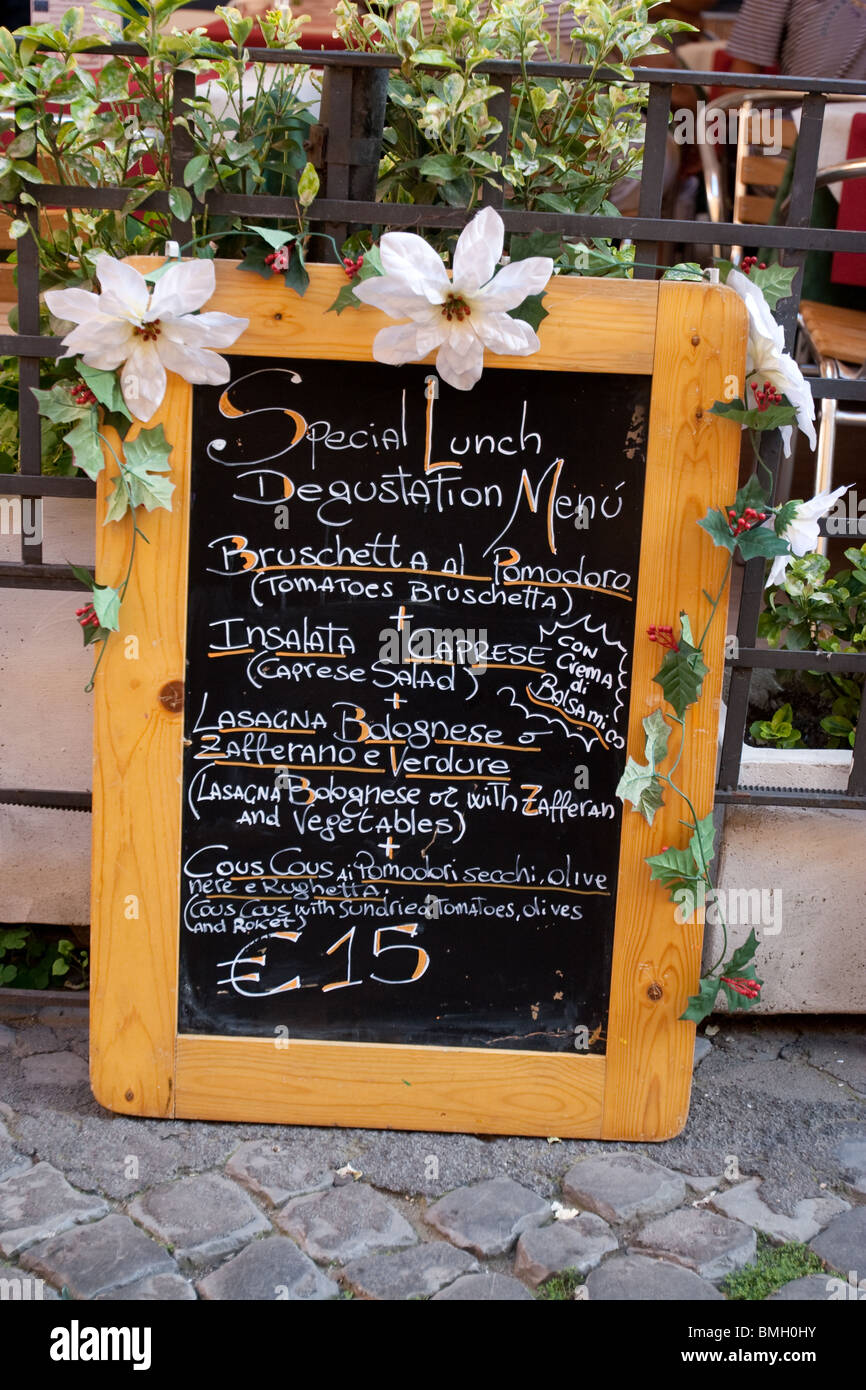 Special Lunch
Degustation Menú
Bruschetta al Pomodoro
(Tomatoes Bruschetta)
+
Insalata Caprese
(Caprese Salad)
con
crema
di
Balsamico
+
Lasagna Bolognese o
Zafferano e Verdure
(Lasagna Bolognese or with Zafferan
and Vegetables)
+
Cous Cous ai Pomodori secchi, olive
nere e Rughetta.
(Cous Cous with sundried tomatoes, olives
and Roket)
€ 15
alamy
Image ID: BMH0HY
www.alamy.com